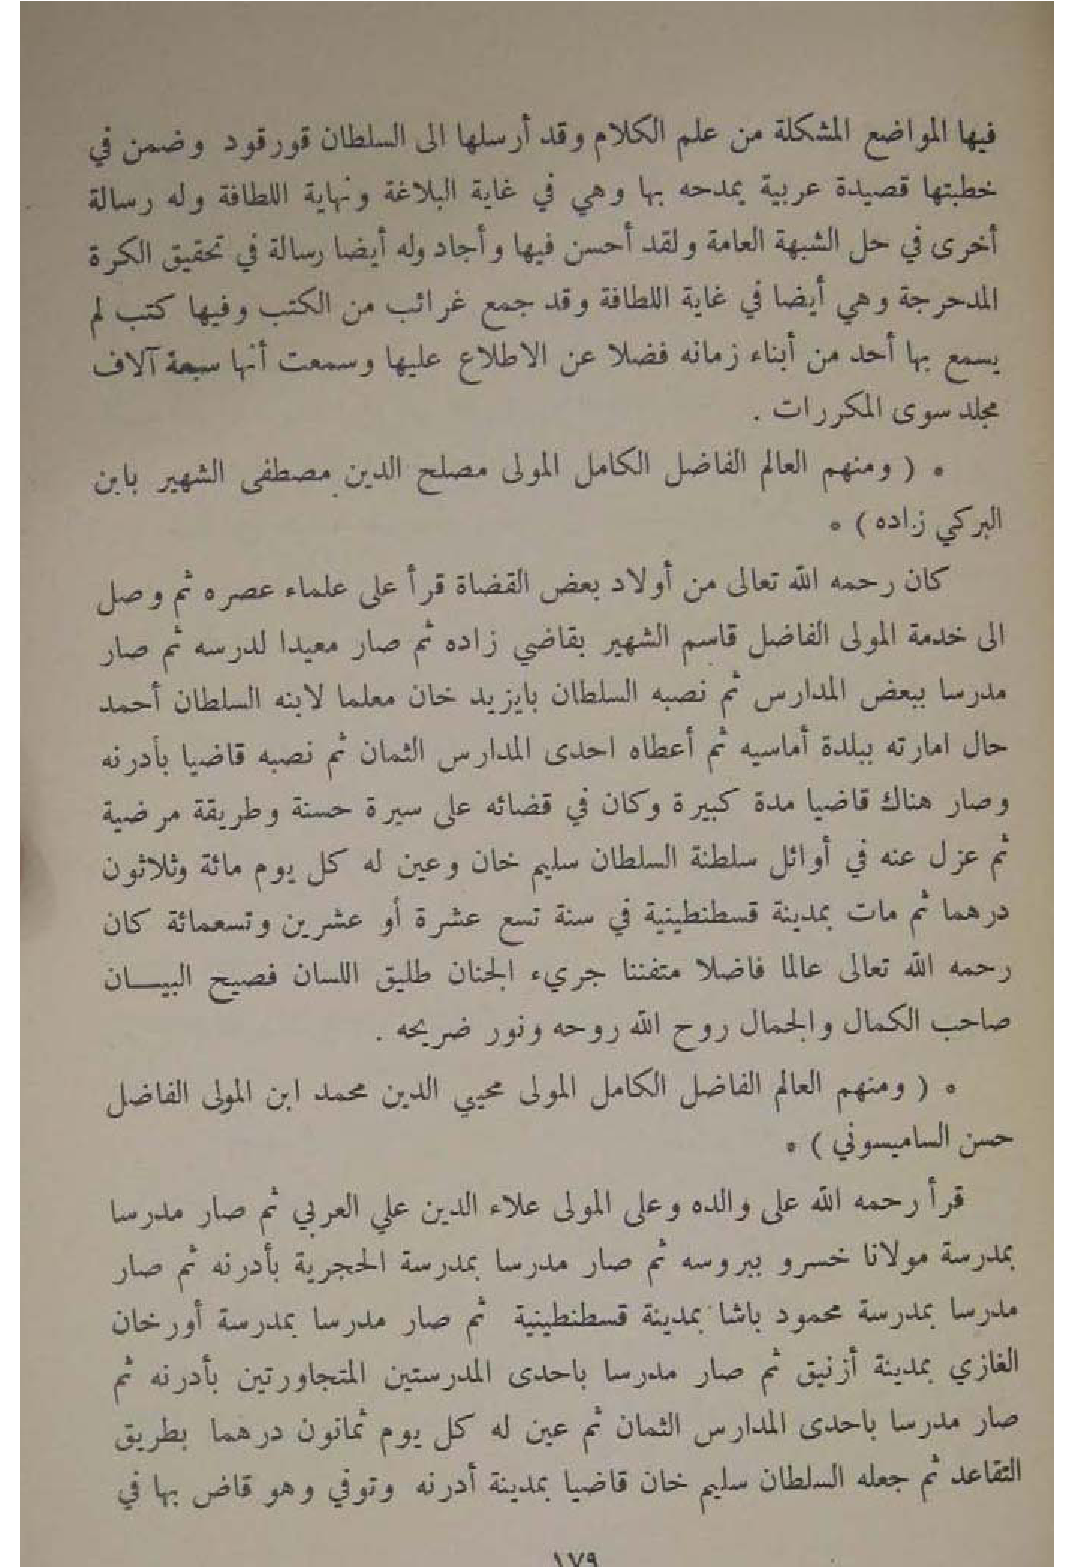 فيها المواضع المشكلة من علم الكلام وقد أرسلها الى السلطان قورقود وضمن في
خطبتها قصيدة عربية يمدحه بها وهي في غاية البلاغة ونهاية اللطافة وله رسالة
أخرى في حل الشبهة العامة ولقد أحسن فيها وأجاد وله أيضا رسالة في تحقيق الكرة
المدحرجة وهي أيضا في غاية اللطافة وقد جمع غرائب من الكتب وفيها كتب لم
يسمع بها أحد من أبناء زمانه فضلا عن الاطلاع عليها وسمعت أنها سبعة آلاف
مجلد سوى المكررات .
* ( ومنهم العالم الفاضل الكامل المولى مصلح الدين مصطفى الشهير بابن
البركي زاده ) *
كان رحمه الله تعالى من أولاد بعض القضاة قرأ على علماء عصره ثم وصل
الى خدمة المولى الفاضل قاسم الشهير بقاضي زاده ثم صار معيدا لدرسه ثم صار
مدرسا ببعض المدارس ثم نصبه السلطان بايزيد خان معلما لابنه السلطان أحمد
حال امارته ببلدة أماسيه ثم أعطاه احدى المدارس الثمان ثم نصبه قاضيا بأدرنه
وصار هناك قاضيا مدة كبيرة وكان في قضائه على سيرة حسنة وطريقة مرضية
ثم عزل عنه في أوائل سلطنة السلطان سليم خان وعين له كل يوم مائة وثلاثون
درهما ثم مات بمدينة قسطنطينية في سنة تسع عشرة أو عشرين وتسعمائة كان
رحمه الله تعالى عالما فاضلا متفننا جريء الجنان طليق اللسان فصيح البيـــان
صاحب الكمال والجمال روح الله روحه ونور ضريحه .
* ( ومنهم العالم الفاضل الكامل المولى محيي الدين محمد ابن المولى الفاضل
حسن الساميسوني ) *
قرأ رحمه الله على والده وعلى المولى علاء الدين علي العربي ثم صار مدرسا
بمدرسة مولانا خسرو ببروسه ثم صار مدرسا بمدرسة الحجرية بأدرنه ثم صار
مدرسا بمدرسة محمود باشا بمدينة قسطنطينية ثم صار مدرسا بمدرسة أورخان
الغازي بمدينة أزنيق ثم صار مدرسا باحدى المدرستين المتجاورتين بأدرنه ثم
صار مدرسا باحدى المدارس الثمان ثم عين له كل يوم ثمانون درهما بطريق
التقاعد ثم جعله السلطان سليم خان قاضيا بمدينة أدرنه وتوفي وهو قاض بها في
١٧٩